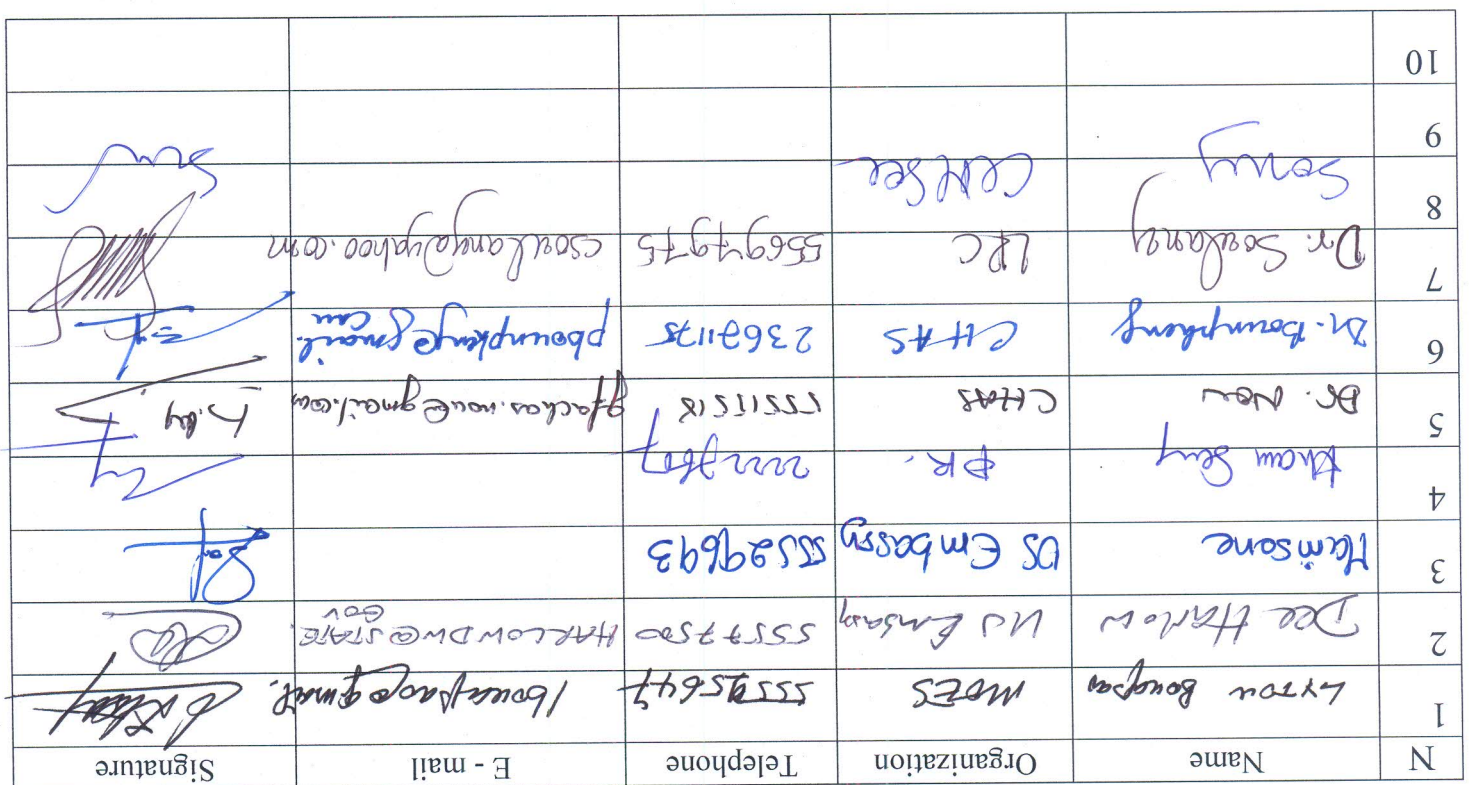 N Name Organization Telephone E - mail Signature
1 Lytou Bouapao MOES 55595647 lbouapao@gmail.
2 Dee Harlow US Embassy 55577500 HARLOWDW@STATE.
GOV
3 Manisone US Embassy 55529693
4 Kham Seng PR.
5 Dr. Nou CHAS 55511518
6 Dr. Bounpheng CHAS 23671175 pbounpheng@gmail.
com
7 Dr. Soulany LRC 55697975 csoulanya@yahoo.com
8 Somy
9
10